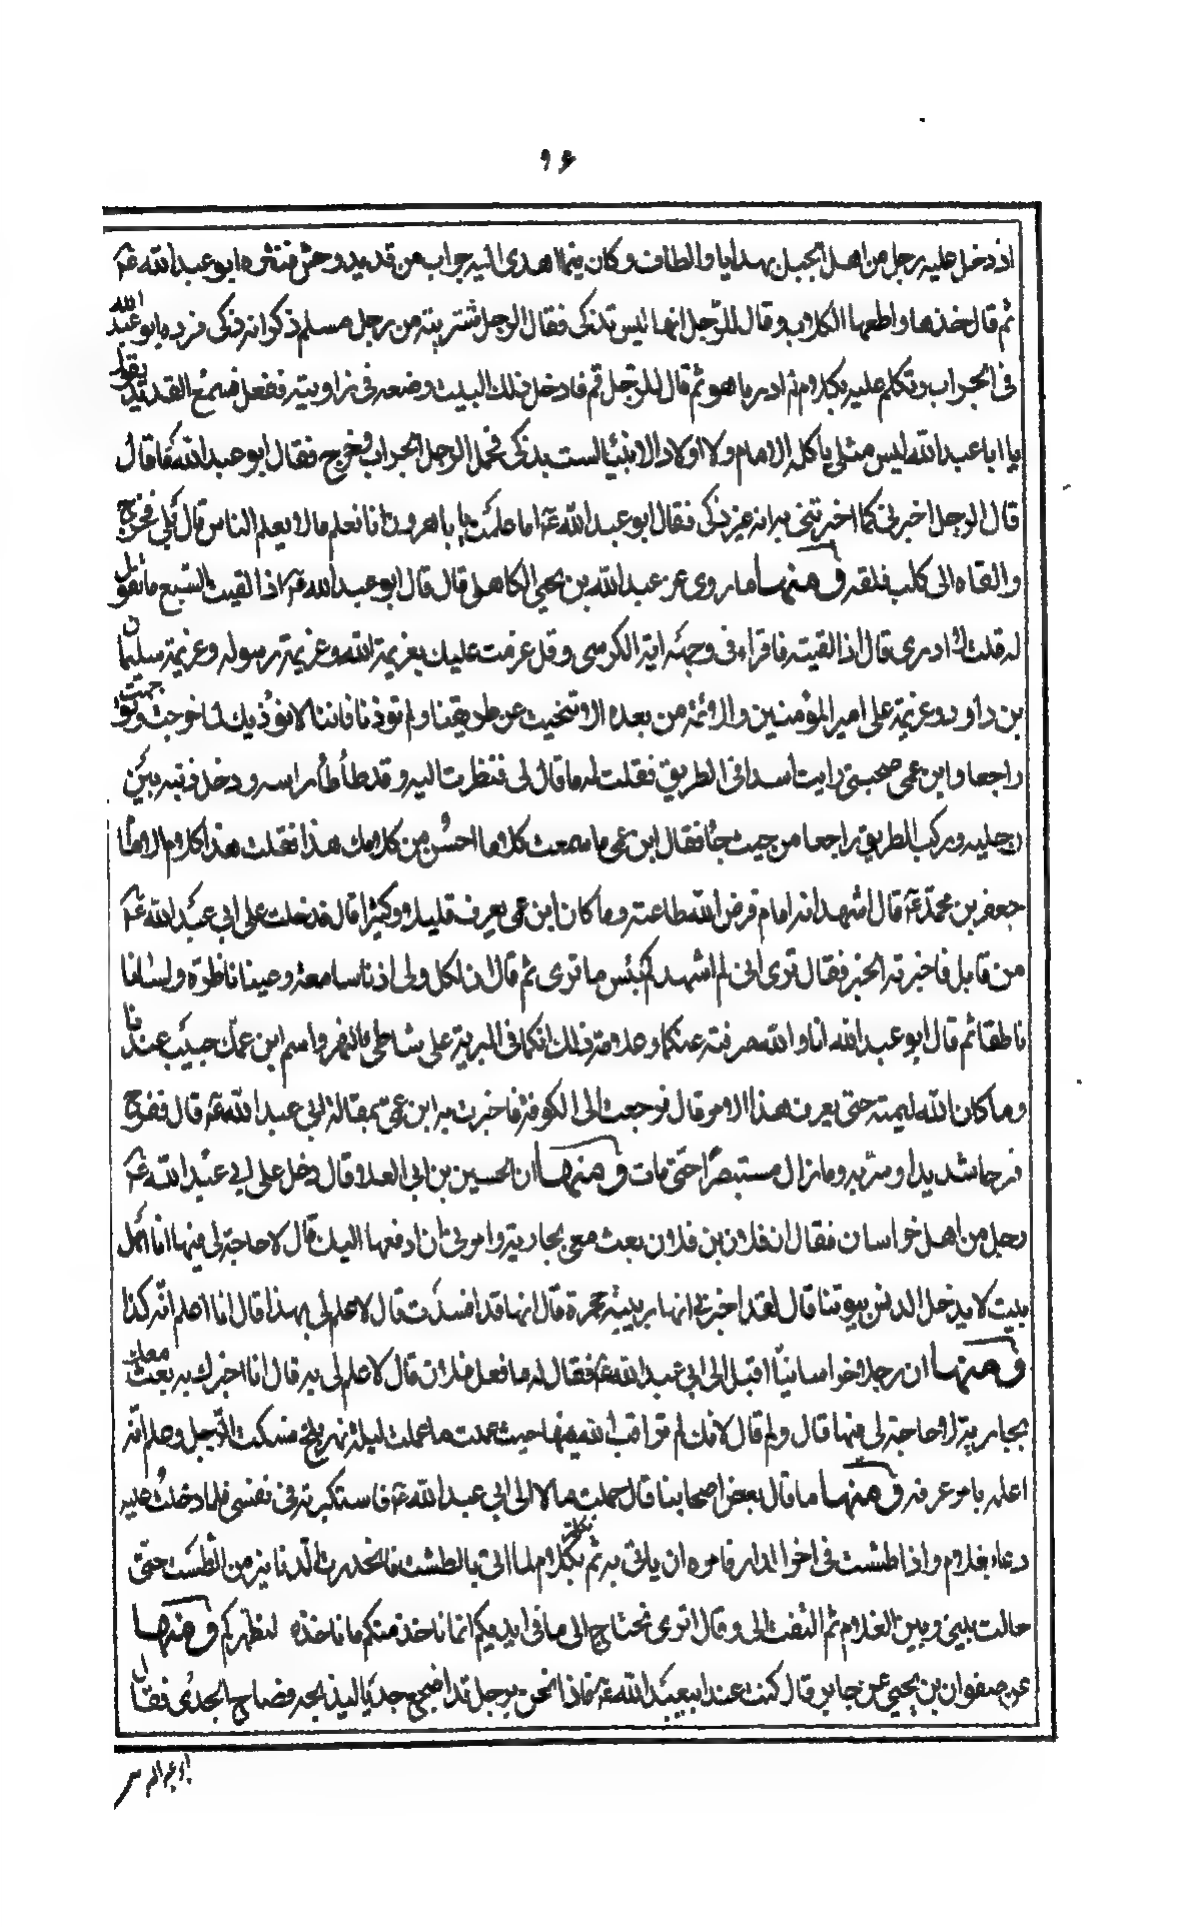 ٩٦
اذ دخل عليه رجل من اهل الجبل بهدايا والطاف وكان فيما اهدى اليه جراب من قديد وحش فنثره ابو عبد الله عَ
ثم قال خذها واطعمها الكلاب وقال للرجل انها ليس تذكى فقال الرجل شتريته من رجل مسلم ذكر انه ذكى فرده ابو عبد الله
فى الجراب وتكلم عليه بكلام لم ادر ما هو ثم قال للرجل قم فادخل ذلك البيت وضعه فى زاويته ففعل فسمع القديد يقول
يا ابا عبد الله ليس مثلى ياكله الامام ولا اولاد الانبيا لست بذكى فحمل الرجل الجراب وخرج فقال ابو عبد الله عَ ما قال
قال الرجل اخبرنى كما اخبرتنى به انه غير ذكى فقال ابو عبد الله عَ اما علمت يا ابا هرون انا نعلم ما لا يعلم الناس قال بلى فخرج
والقاه الى كلب فلقه ومنها ما روى عن عبد الله بن يحيى الكاهلى قال قال ابو عبد الله عَ اذا لقيت السبع ما تقول
له قلت لا ادرى قال اذا لقيته فاقراء فى وجهه اية الكرسى وقل عزمت عليك بعزيمة الله وعزيمة رسوله وعزيمة سليمان
بن داود وعزيمة على امير المؤمنين والائمة من بعده الا تنحيت عن طريقنا ولم توذنا فاننا لا نوذيك فخرجت وتوجهت
راجعا وابن عمى صحبنى رايت اسدا فى الطريق فقلت له ما قال لى فنظرت اليه وقد طأطأ راسه ودخل ذنبه بين
رجليه وركب الطريق راجعا من حيث جأ فقال ابن عمى ما سمعت كلاما احسن من كلامك هذا فقلت هذا كلام الامام
جعفر بن محمد عَ قال اشهد انه امام فرض الله طاعته وما كان ابن عمى يعرف قليلا وكثيرا قال فدخلت على ابى عبد الله عَ
من قابل فاخبرته الخبر فقال ترى انى لم اشهدكم بئس ما ترى ثم قال ان لكل ولى اذنا سامعة وعينا ناظرة ولسانا
ناطقا ثم قال ابو عبد الله انا والله صرفته عنكما وعلامة ذلك انكما فى البرية على شاطئ النهر واسم ابن عمك حبيب عندنا
وما كان الله ليميته حتى يعرف هذا الامر قال فرجعت الى الكوفة فاخبرت به ابن عمى بمقالة ابى عبد الله عَ قال ففرح
فرحا شديدا وسرّ به وما زال مستبصرا حتى مات ومنها ان الحسين بن ابى العلا قال دخل على ابى عبد الله عَ
رجل من اهل خراسان فقال ان فلان بن فلان بعث معى بجارية وامرنى ان ادفعها اليك قال لا حاجة لى فيها انا اهل
بيت لا يدخل الدنس بيوتنا قال لقد اخبرنى انها ربيبة حجره قال انها قد افسدت قال لا علم لى بهذا قال انا اعلم انه كذا
ومنها ان رجلا خراسانيا اقبل الى ابى عبد الله عَ فقال له ما فعل فلان قال لا علم لى به قال انا اخبرك به بعث معك
بجارية لا حاجة لى فيها قال ولم قال لانك لم تراقب الله فيها حيث عملت ما عملت ليلة نهر بلخ فسكت الرجل وعلم انه
اعلم بامر عرفه ومنها ما قال بعض اصحابنا قال حملت مالا الى ابى عبد الله عَ فاستكبرته فى نفسى فلما دخلت عليه
دعا بغلام واذا طشت فى اخر الدار فامره ان ياتى به ثم تكلم بكلام لما اتى بالطشت فانحدرت الدنانير من الطست حتى
حالت بينى وبين الغلام ثم التفت الى وقال اترى نحتاج الى ما فى ايديكم انما ناخذ منكم ما ناخذه لنطهركم ومنها
عن صفوان بن يحيى عن جابر قال كنت عند ابيعبد الله عَ فاذا نحن برجل قد اضجع جديا ليذبحه فصاح الجدى فقال